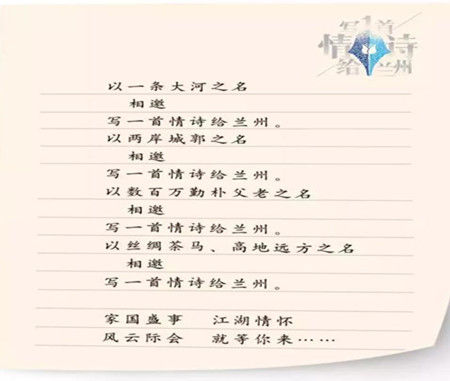 写1首
情诗
给兰州
以一条大河之名
相邀
写一首情诗给兰州。
以两岸城郭之名
相邀
写一首情诗给兰州。
以数百万勤朴父老之名
相邀
写一首情诗给兰州。
以丝绸茶马、高地远方之名
相邀
写一首情诗给兰州。
家国盛事 江湖情怀
风云际会 就等你来……